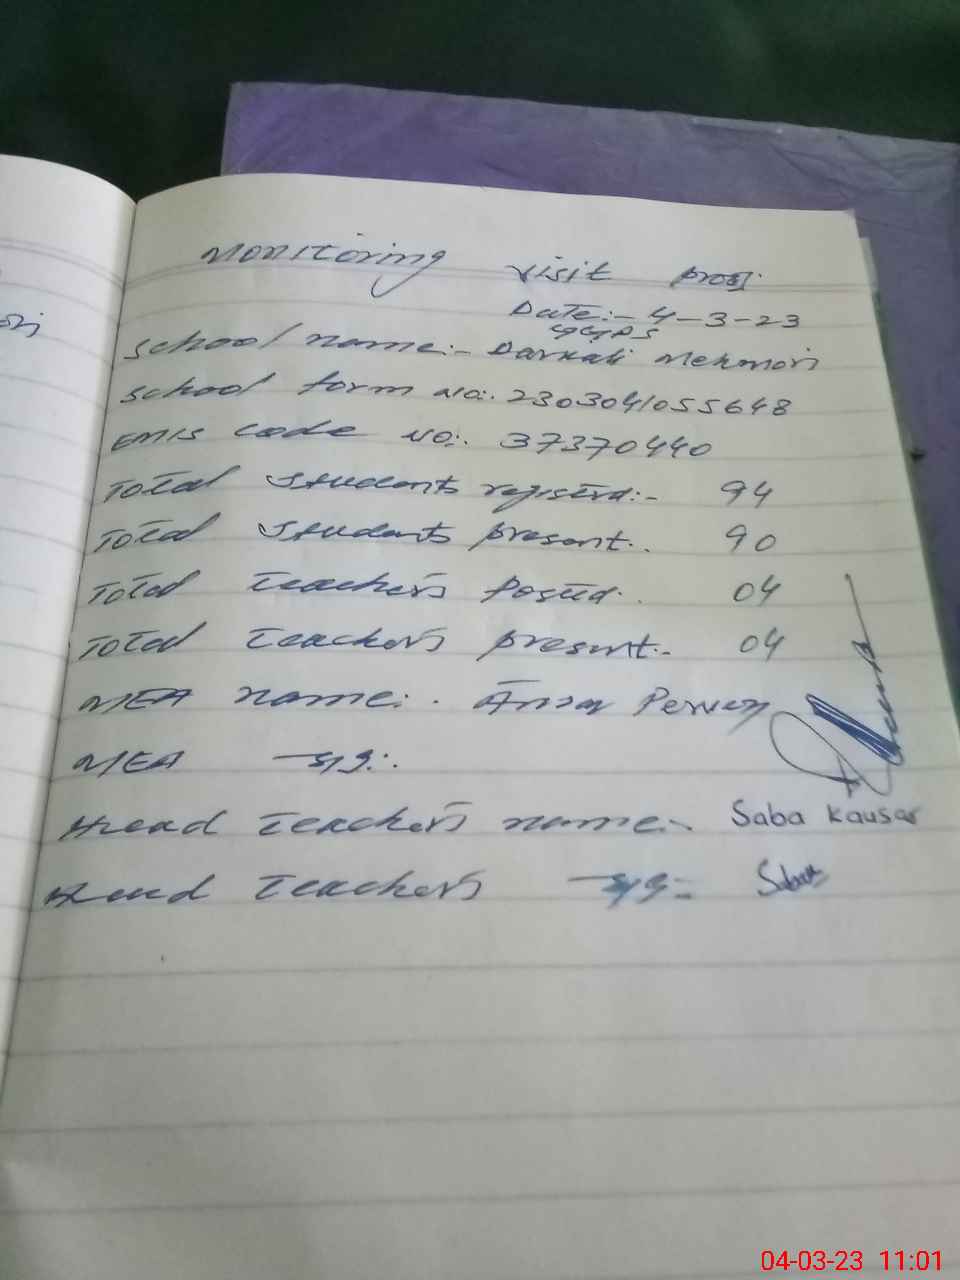 Monitoring visit proof
Date:- 4-3-23
GGPS
School name:- Darkali Mehmori
School form No:. 2303041055648
EMIS code No:. 37370440
Total Students registrd:- 94
Total Students present:. 90
Total Teachers Posted:. 04
Total Teachers present:- 04
MEA name:. Pervez
MEA sig:.
Head Teachers name:- Saba Kausar
Head Teachers sig:- Saba
04-03-23 11:01